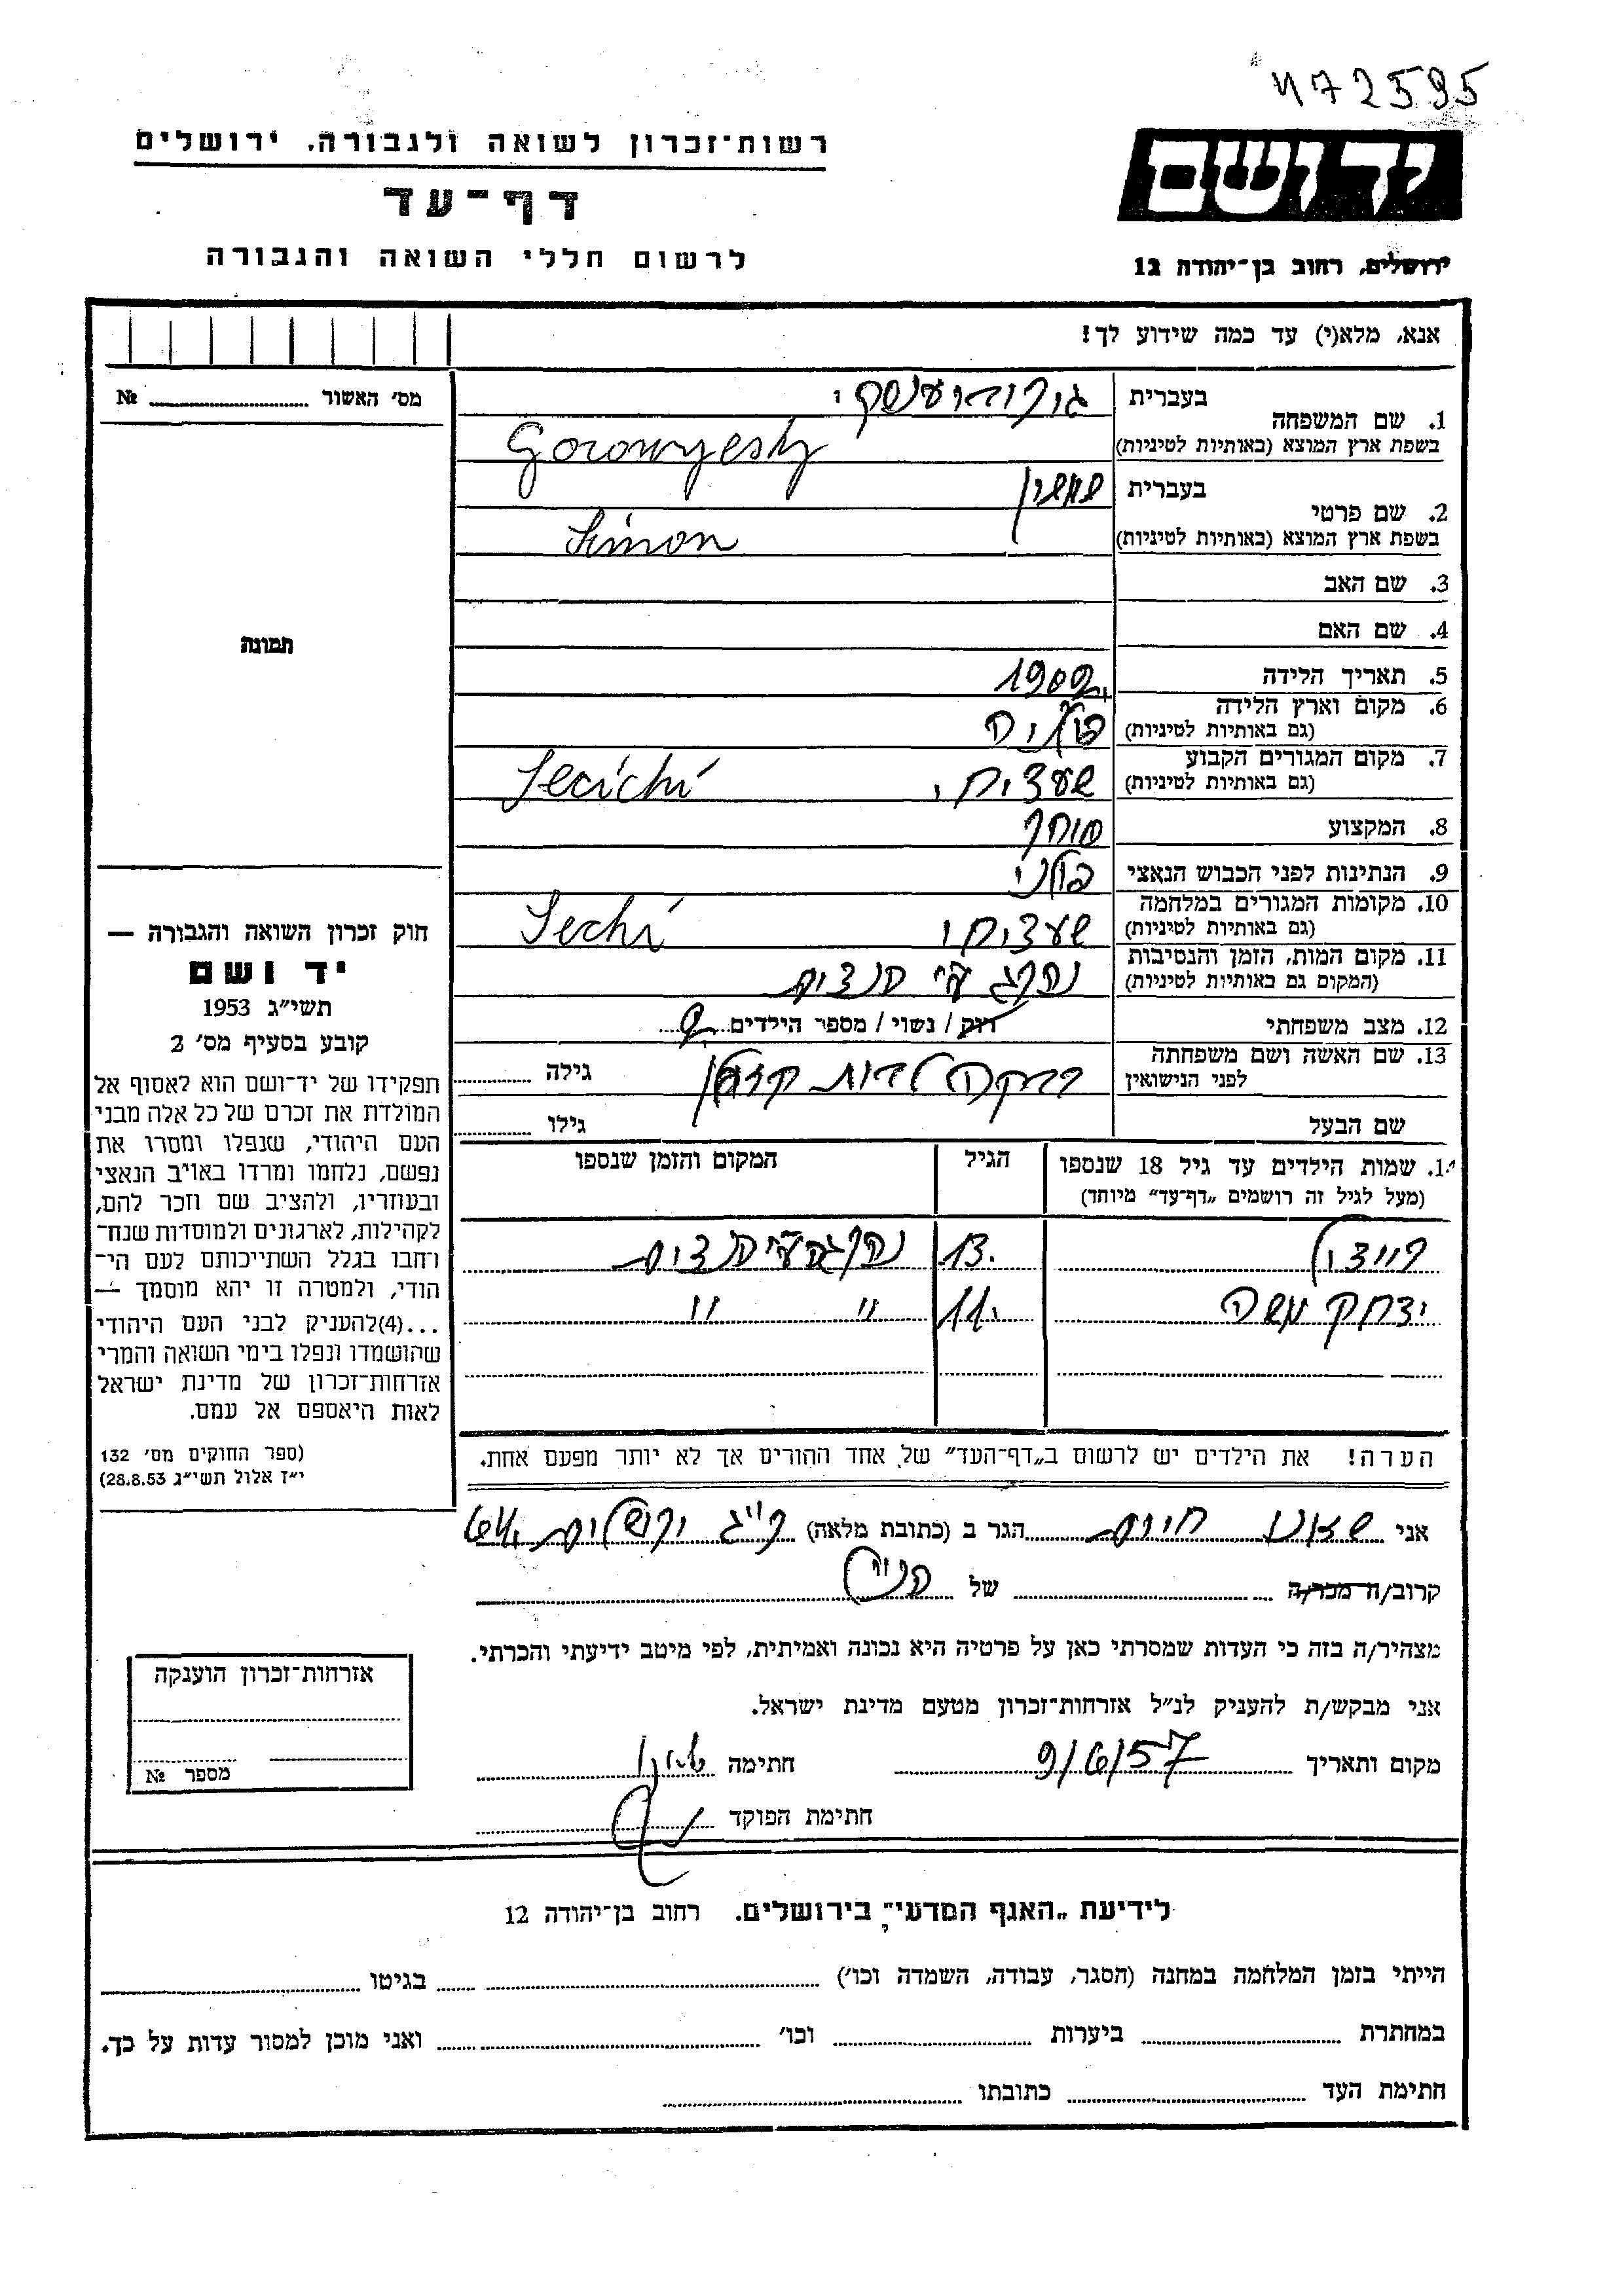 472595
רשות־זכרון לשואה ולגבורה. ירושלים
דף־עד
לרשום חללי השואה והגבורה
יד ושם
ירושלים, רחוב בן־יהודה 12
אנא, מלא(י) עד כמה שידוע לך!
מס׳ האשור № 
1. שם המשפחה בעברית
בשפת ארץ המוצא (באותיות לטיניות)
2. שם פרטי בעברית שמעון
בשפת ארץ המוצא (באותיות לטיניות) Simon
3. שם האב
4. שם האם
5. תאריך הלידה 1902
6. מקום וארץ הלידה
(גם באותיות לטיניות)
7. מקום המגורים הקבוע
(גם באותיות לטיניות)
8. המקצוע סוחר
9. הנתינות לפני הכבוש הנאצי פולני
10. מקומות המגורים במלחמה
(גם באותיות לטיניות)
11. מקום המות, הזמן והנסיבות נהרג ע״י
(המקום גם באותיות לטיניות)
12. מצב משפחתי רוק / נשוי / מספר הילדים 2
13. שם האשה ושם משפחתה
לפני הנישואין רבקה לבית גילה
שם הבעל גילו
תמונה
חוק זכרון השואה והגבורה —
יד ושם
תשי״ג 1953
קובע בסעיף מס׳ 2
תפקידו של יד־ושם הוא לאסוף אל
המולדת את זכרם של כל אלה מבני
העם היהודי, שנפלו ומסרו את
נפשם, נלחמו ומרדו באויב הנאצי
ובעוזריו, ולהציב שם וזכר להם,
לקהילות, לארגונים ולמוסדות שנח־
רחבו בגלל השתייכותם לעם הי־
הודי, ולמטרה זו יהא מוסמך —
...(4)להעניק לבני העם היהודי
שהושמדו ונפלו בימי השואה והמרי
אזרחות־זכרון של מדינת ישראל
לאות היאספם אל עמם.
(ספר החוקים מס׳ 132
י״ז אלול תשי״ג 28.8.53)
14. שמות הילדים עד גיל 18 שנספו הגיל המקום והזמן שנספו
(מעל לגיל זה רושמים „דף־עד” מיוחד)
13.
יצחק משה 11. " "
הערה! את הילדים יש לרשום ב„דף־העד” של אחד ההורים אך לא יותר מפעם אחת.
אני חיים הגר ב (כתובת מלאה) ירושלים
קרוב/ה מכר/ה של הנ״ל
מצהיר/ה בזה כי העדות שמסרתי כאן על פרטיה היא נכונה ואמיתית, לפי מיטב ידיעתי והכרתי.
אני מבקש/ת להעניק לנ״ל אזרחות־זכרון מטעם מדינת ישראל.
מקום ותאריך 9/6/57 חתימה
חתימת הפוקד
אזרחות־זכרון הוענקה
מספר №
לידיעת „האגף המדעי” בירושלים. רחוב בן־יהודה 12
הייתי בזמן המלחמה במחנה (הסגר, עבודה, השמדה וכו׳) בגיטו
במחתרת ביערות וכו׳ ואני מוכן למסור עדות על כך.
חתימת העד כתובתו